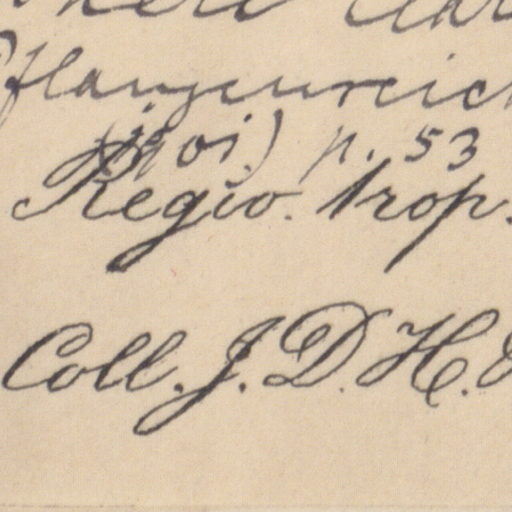 Pflanzenreich
p. 53
Regio. trop.
Coll. J. D. H.